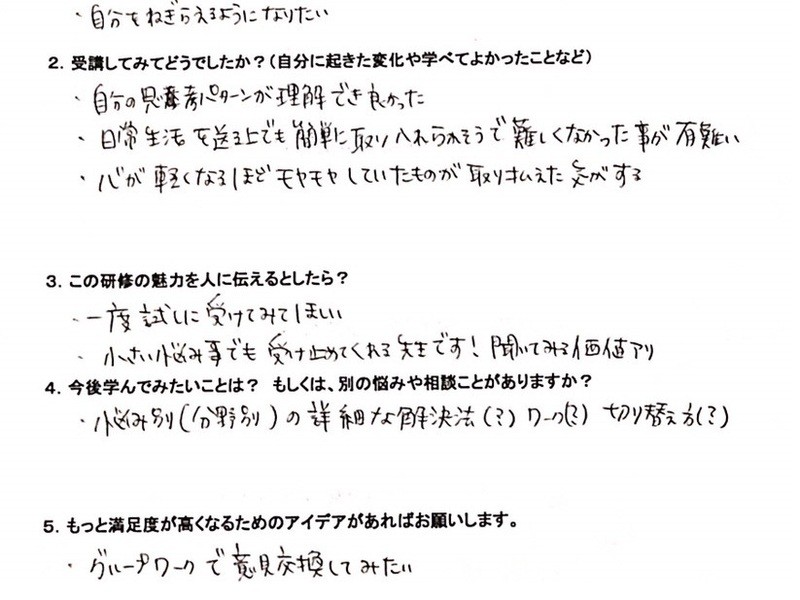 ・自分をねぎらえるようになりたい
2. 受講してみてどうでしたか？（自分に起きた変化や学べてよかったことなど）
・自分の思考パターンが理解でき良かった
・日常生活を送る上でも簡単に取り入れられそうで難しくなかった事が有難い
・心が軽くなるほどモヤモヤしていたものが取り払えた気がする
3. この研修の魅力を人に伝えるとしたら？
・一度試しに受けてみてほしい
・小さい悩み事でも受け止めてくれる先生です！聞いてみる価値アリ
4. 今後学んでみたいことは？ もしくは、別の悩みや相談ことがありますか？
・悩み別（分野別）の詳細な解決法(?) ワーク(?) 切り替え方(?)
5. もっと満足度が高くなるためのアイデアがあればお願いします。
・グループワークで意見交換してみたい